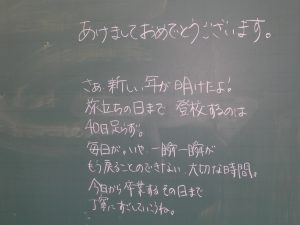 あけましておめでとうございます。
さあ 新しい年が明けたよ!
旅立ちの日まで 登校するのは
40日足らず。
毎日が、いや、一瞬一瞬が
もう戻ることのできない大切な時間。
今日から卒業するその日まで
丁寧にすごしていこうね。